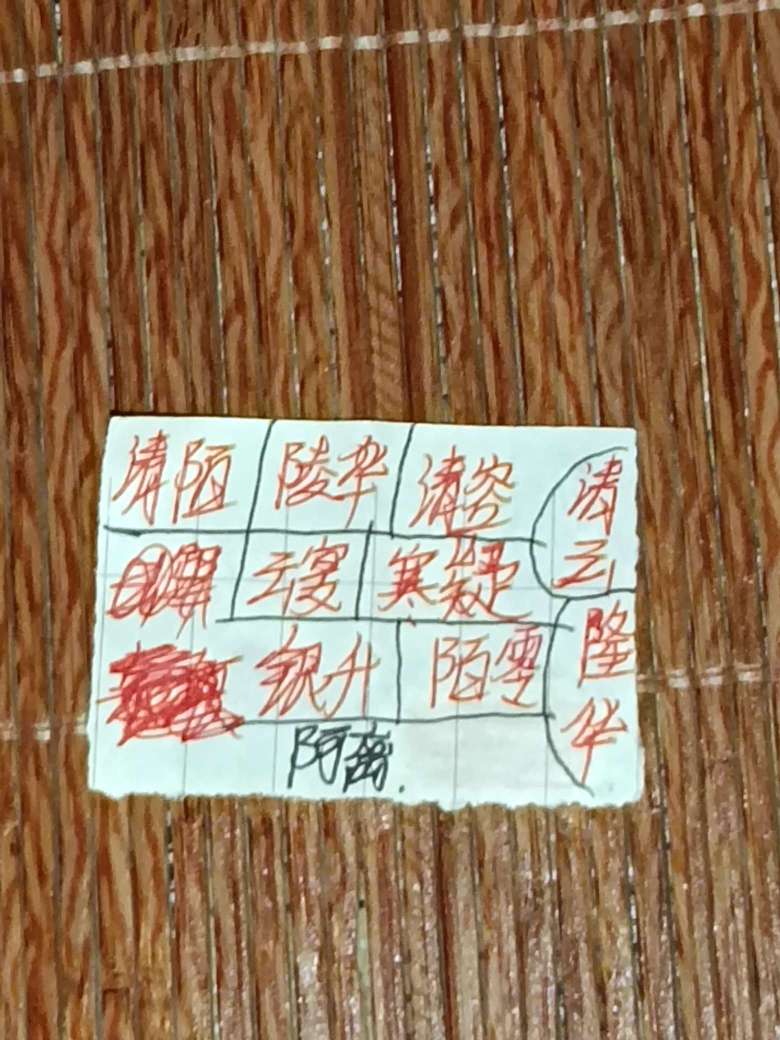 清陌 陵华 清容 清云
云寞 寒疑 隆华
银升 陌雪
阿离.